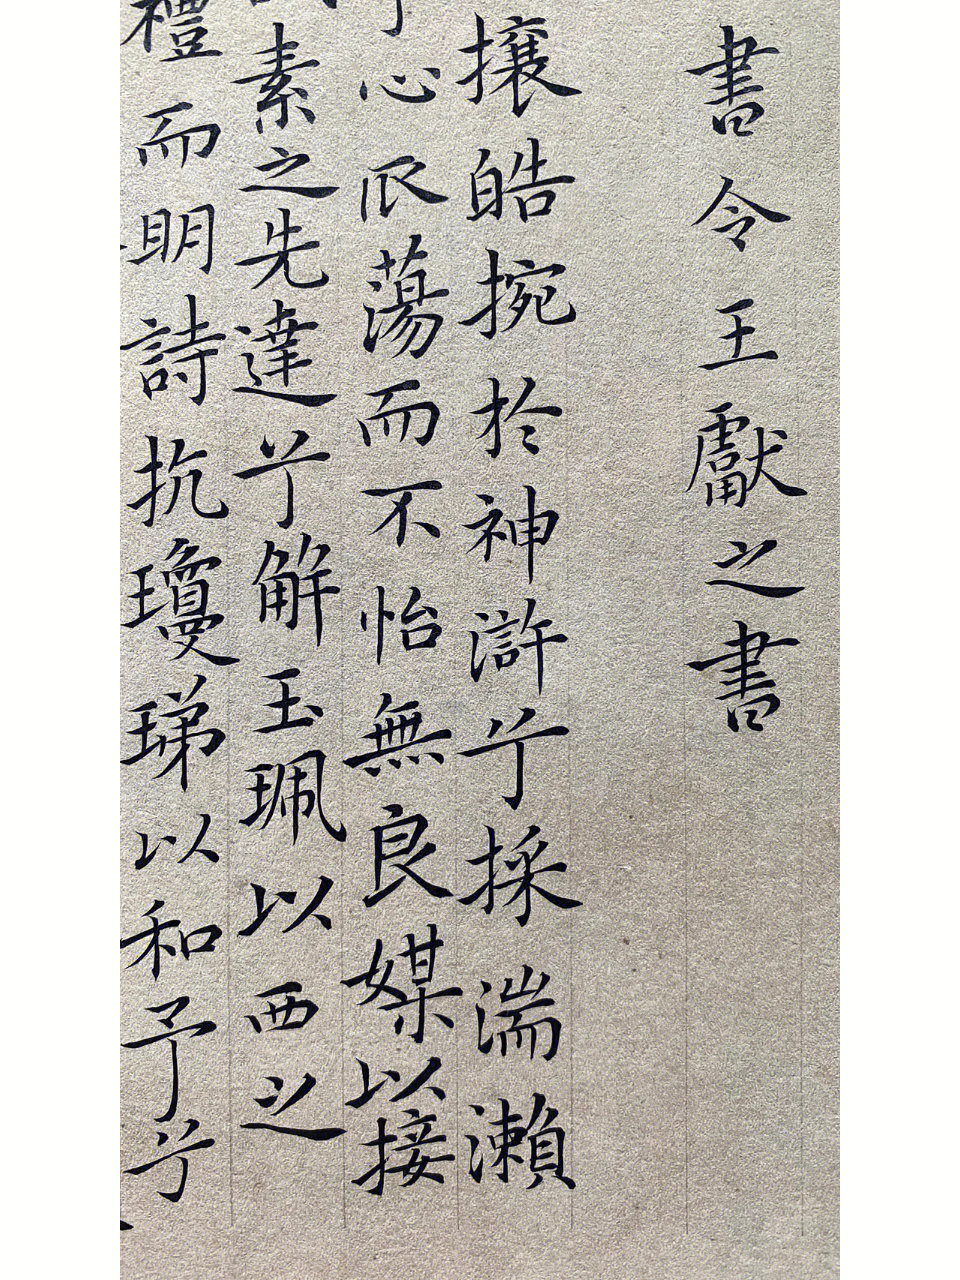 書令王獻之書
攘皓捥於神滸兮採湍瀨
兮心蕩而不怡無良媒以接
素之先達兮解玉珮以西之
禮而明詩抗瓊珶以和予兮